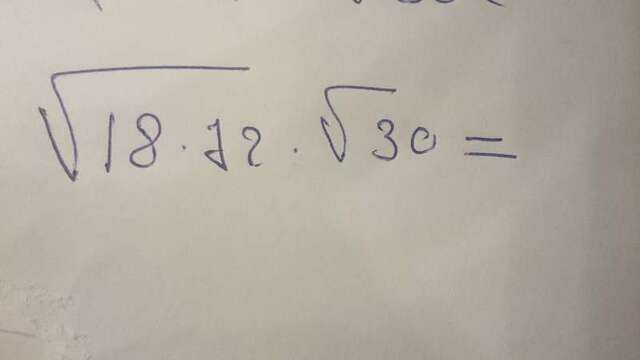 √18·72·√30=